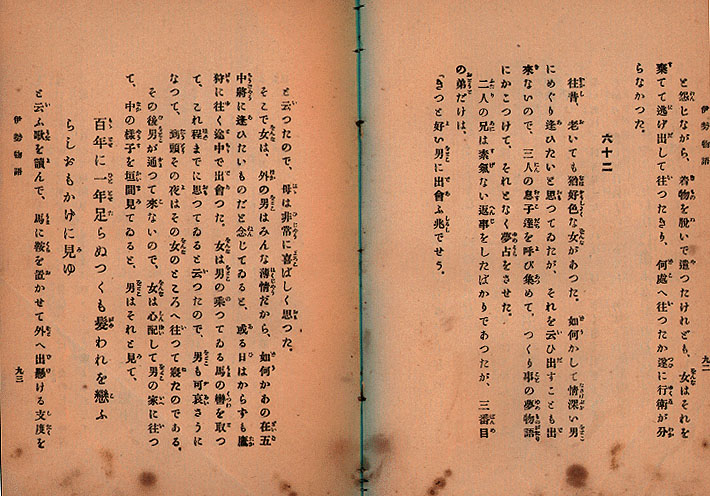 伊勢物語
九二
と怨じながら、着物を脱いで遣つたけれども、女はそれを
棄てて逃げ出して往つたきり、何處へ往つたか遂に行衛が分
らなかつた。
六十二
往昔、老いても猶好色な女があつた。如何かして情深い男
にめぐり逢ひたいと思つてゐたが、それを云ひ出すことも出
來ないので、三人の息子達を呼び集めて、つくり事の夢物語
にかこつけて、それとなく夢占をさせた。
二人の兄は素氣ない返事をしたばかりであつたが、三番目
の弟だけは、
「きつと好い男に出會ふ兆でせう。
と云つたので、母は非常に喜ばしく思つた。
そこで女は、外の男はみんな薄情だから、如何かあの在五
中將に逢ひたいものだと念じてゐると、或る日はからずも鷹
狩に往く途中で出會つた。女は男の乘つてゐる馬の轡を取つ
て、これ程までに思つてゐると云つたので、男も可哀さうに
なつて、到頭その夜はその女のところへ往つて寢たのである。
その後男が通つて來ないので、女は心配して男の家に往つ
て、中の樣子を垣間見てゐると、男はそれと見て、
百年に一年足らぬつくも髮われを戀ふ
らしおもかけに見ゆ
と云ふ歌を讀んで、馬に鞍を置かせて外へ出懸ける支度を
伊勢物語
九三